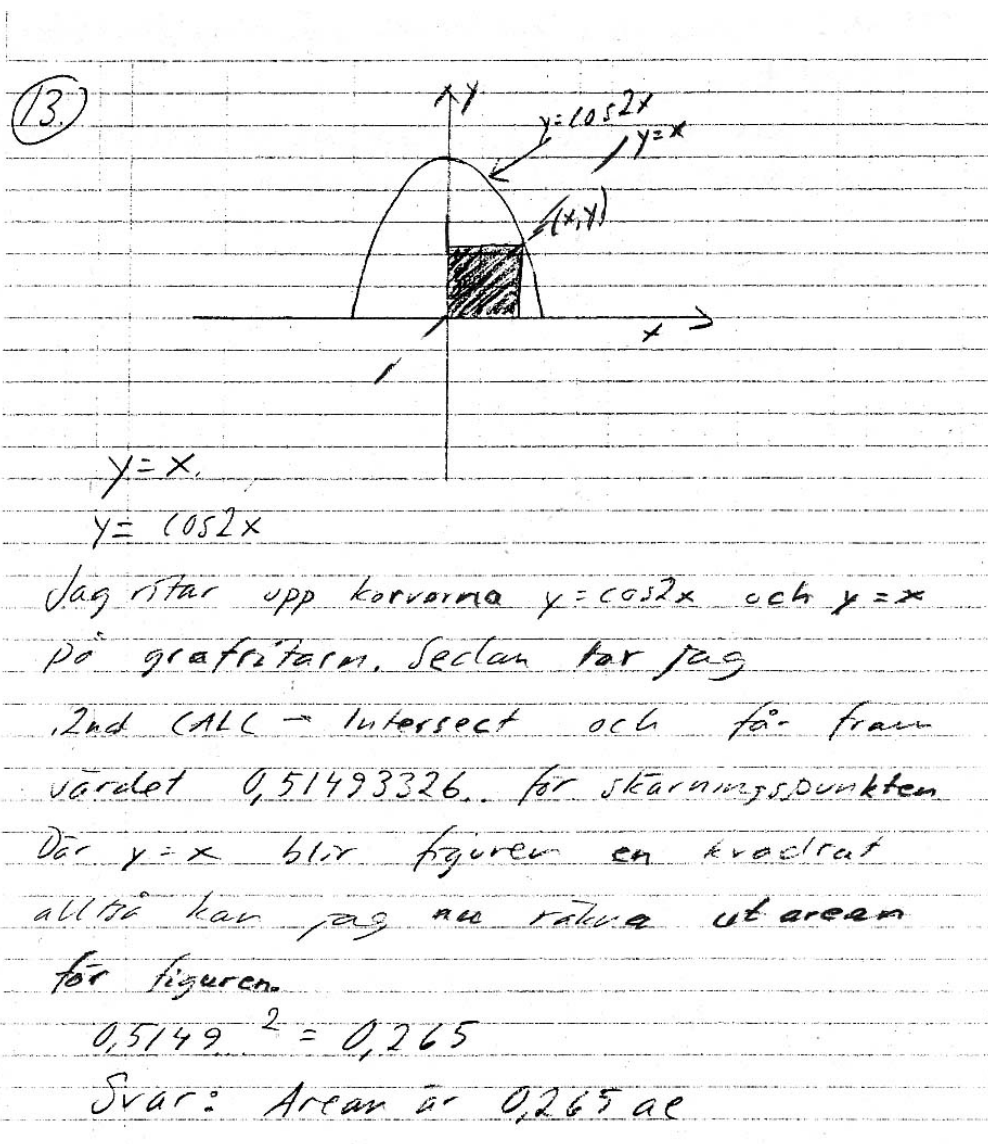 13.
y
y=cos2x
y=x
(x,y)
x
y=x.
y=cos2x
Jag ritar upp kurvorna y=cos2x och y=x
på grafritarn. Sedan tar jag
2nd CALC - Intersect och får fram
värdet 0,51493326.. för skärningspunkten
Där y=x blir figuren en kvadrat
alltså kan jag nu räkna ut arean
för figuren.
0,5149² = 0,265
Svar: Arean är 0,265 ae